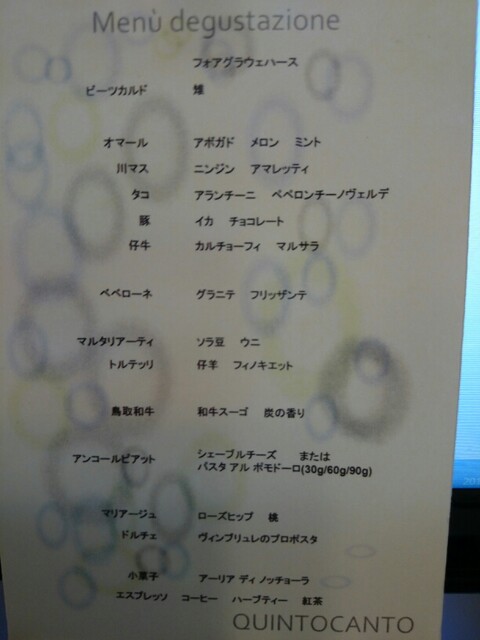 Menù degustazione
フォアグラウェハース
ビーツカルド 雉
オマール アボガド メロン ミント
川マス ニンジン アマレッティ
タコ アランチーニ ペペロンチーノヴェルデ
豚 イカ チョコレート
仔牛 カルチョーフィ マルサラ
ペペローネ グラニテ フリッザンテ
マルタリアーティ ソラ豆 ウニ
トルテッリ 仔羊 フィノキエット
鳥取和牛 和牛スーゴ 炭の香り
アンコールピアット シェーブルチーズ または
パスタ アル ポモドーロ(30g/60g/90g)
マリアージュ ローズヒップ 桃
ドルチェ ヴィンブリュレのプロポスタ
小菓子 アーリア ディ ノッチョーラ
エスプレッソ コーヒー ハーブティー 紅茶
QUINTOCANTO